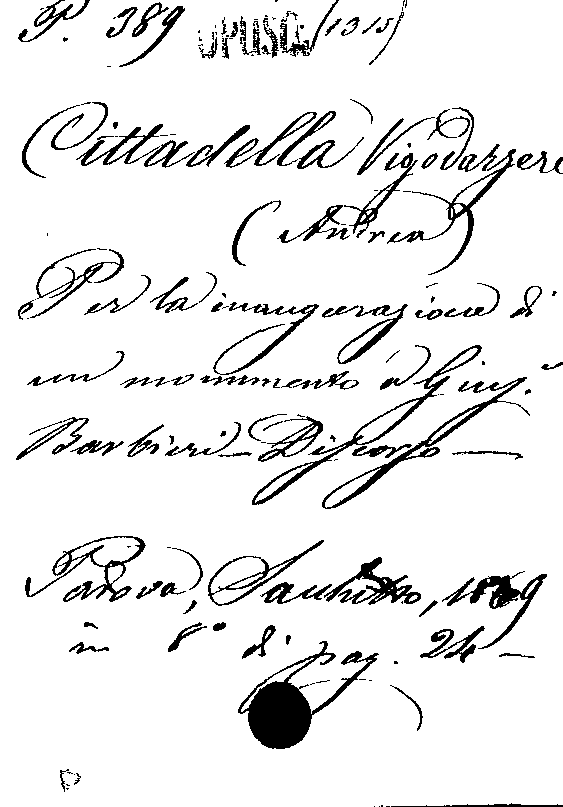 P. 389 OPUSC. (1315)
Cittadella Vigodarzere
(Andrea)
Per la inaugurazione di
un monumento a Gius.e
Barbieri – Discorso —
Padova, Sacchetto, 1869
in 8° di pag. 24 –